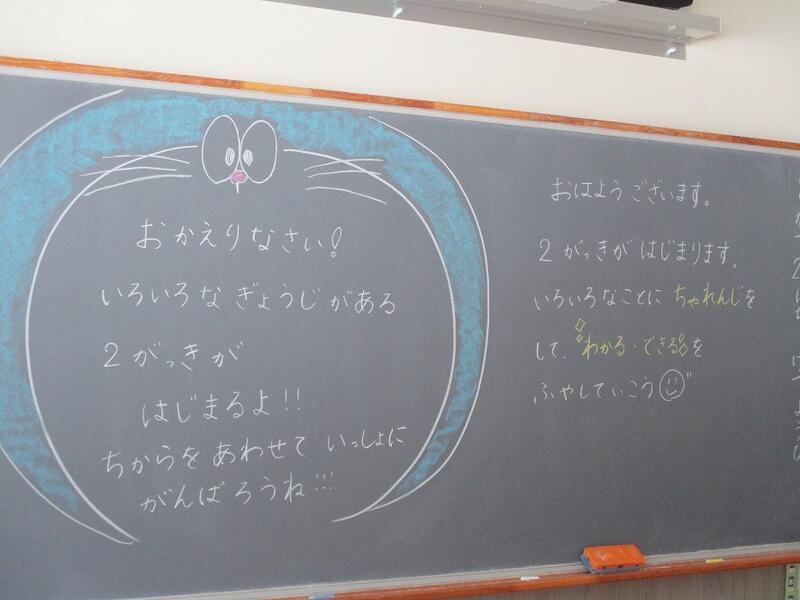 おかえりなさい!
いろいろなぎょうじがある
2がっきが
はじまるよ!!
ちからをあわせていっしょに
がんばろうね!!!
おはようございます。
2がっきがはじまります。
いろいろなことにちゃれんじを
して、わかる・できるを
ふやしていこう